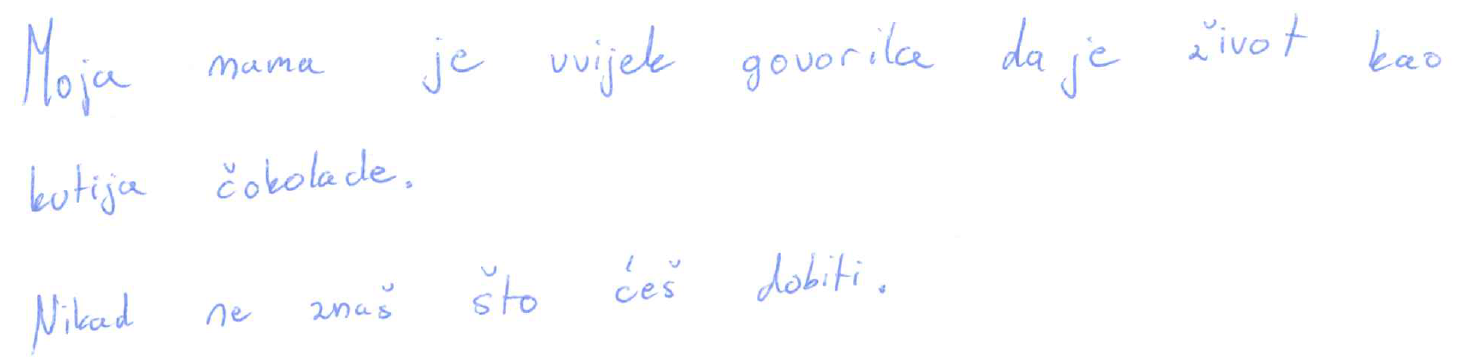 Moja mama je uvijek govorila da je život kao
kutija čokolade.
Nikad ne znaš što ćeš dobiti.